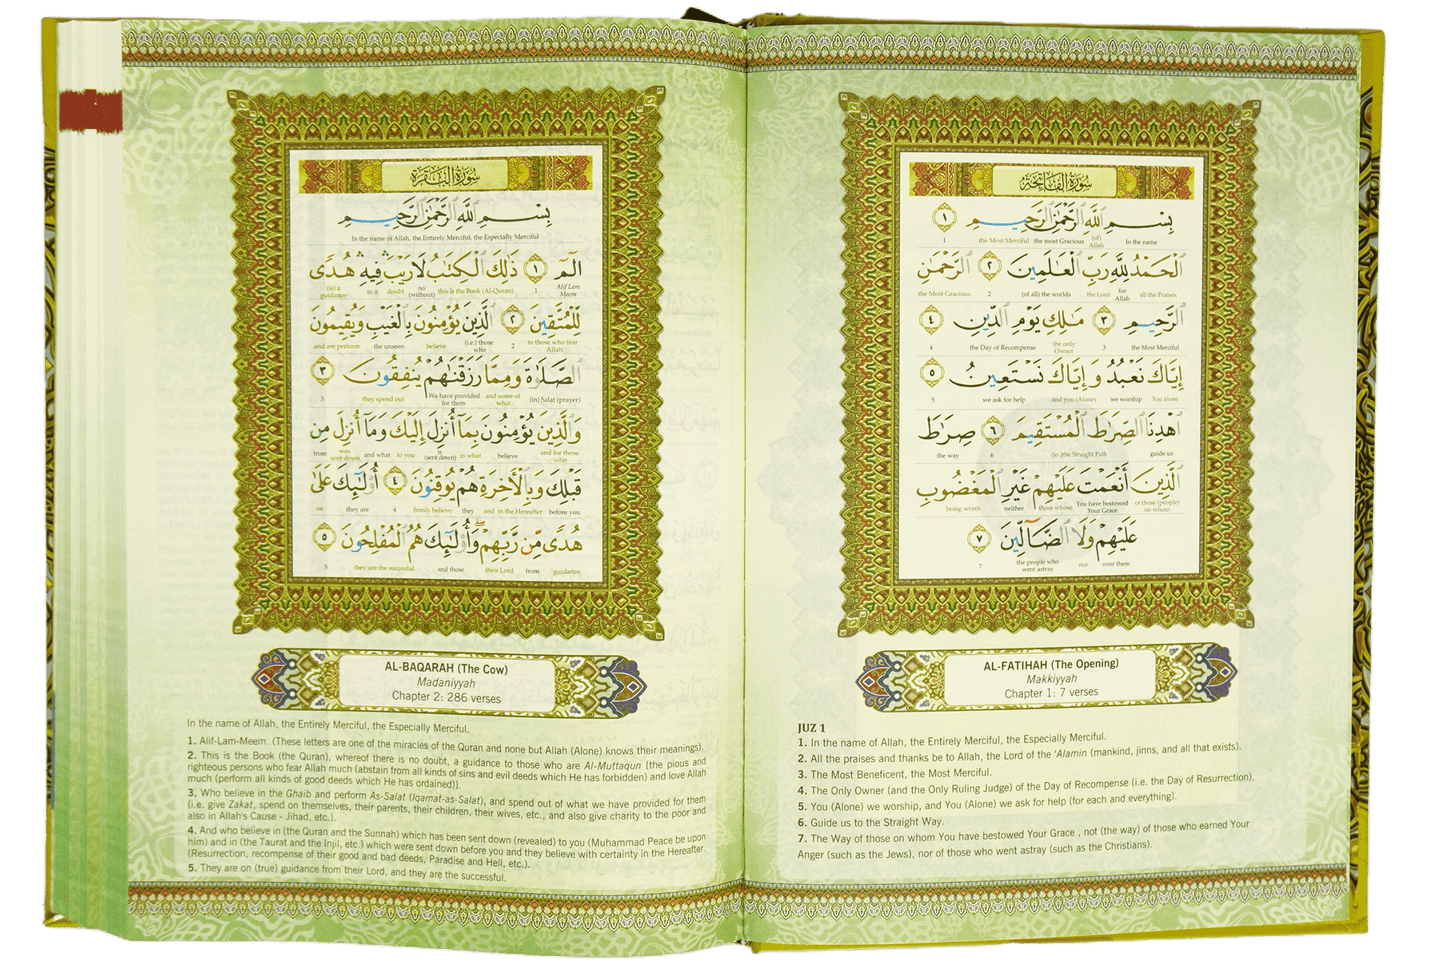 سُورَةُ الْفَاتِحَةِ
بِسْمِ اللَّهِ الرَّحْمَٰنِ الرَّحِيمِ ١
In the name (of) Allah the most Gracious the Most Merciful 1
الْحَمْدُ لِلَّهِ رَبِّ الْعَالَمِينَ ٢ الرَّحْمَٰنِ
all the Praises for Allah the Lord (of all) the worlds 2 the Most Gracious
الرَّحِيمِ ٣ مَالِكِ يَوْمِ الدِّينِ ٤
the Most Merciful 3 the only Owner the Day of Recompense 4
إِيَّاكَ نَعْبُدُ وَإِيَّاكَ نَسْتَعِينُ ٥
You alone we worship and you (Alone) we ask for help 5
اهْدِنَا الصِّرَاطَ الْمُسْتَقِيمَ ٦ صِرَاطَ
guide us (to )the Straight Path 6 the way
الَّذِينَ أَنْعَمْتَ عَلَيْهِمْ غَيْرِ الْمَغْضُوبِ
of those (people) on whom You have bestowed Your Grace those whom neither being wrath
عَلَيْهِمْ وَلَا الضَّالِّينَ ٧
over them nor the people who went astray 7
AL-FATIHAH (The Opening)
Makkiyyah
Chapter 1: 7 verses
JUZ 1
1. In the name of Allah, the Entirely Merciful, the Especially Merciful.
2. All the praises and thanks be to Allah, the Lord of the 'Alamin (mankind, jinns, and all that exists).
3. The Most Beneficent, the Most Merciful.
4. The Only Owner (and the Only Ruling Judge) of the Day of Recompense (i.e. the Day of Resurrection).
5. You (Alone) we worship, and You (Alone) we ask for help (for each and everything).
6. Guide us to the Straight Way.
7. The Way of those on whom You have bestowed Your Grace , not (the way) of those who earned Your
Anger (such as the Jews), nor of those who went astray (such as the Christians).
سُورَةُ الْبَقَرَةِ
بِسْمِ اللَّهِ الرَّحْمَٰنِ الرَّحِيمِ
In the name of Allah, the Entirely Merciful, the Especially Merciful
الم ١ ذَٰلِكَ الْكِتَابُ لَا رَيْبَ فِيهِ هُدًى
Alif Lam Meem 1 this is the Book (Al-Quran) no (without) doubt in it (is) a guidance
لِّلْمُتَّقِينَ ٢ الَّذِينَ يُؤْمِنُونَ بِالْغَيْبِ وَيُقِيمُونَ
to those who fear Allah 2 (i.e.) those who believe the unseen and are perform
الصَّلَاةَ وَمِمَّا رَزَقْنَاهُمْ يُنفِقُونَ ٣
(in) Salat (prayer) and some of what We have provided for them they spend out 3
وَالَّذِينَ يُؤْمِنُونَ بِمَا أُنزِلَ إِلَيْكَ وَمَا أُنزِلَ مِن
and for those who believe in what is (sent down) to you and what was sent down from
قَبْلِكَ وَبِالْآخِرَةِ هُمْ يُوقِنُونَ ٤ أُولَٰئِكَ عَلَىٰ
before you and in the Hereafter they firmly believe 4 they are on
هُدًى مِّن رَّبِّهِمْ وَأُولَٰئِكَ هُمُ الْمُفْلِحُونَ ٥
guidance from their Lord and those they are the succesful 5
AL-BAQARAH (The Cow)
Madaniyyah
Chapter 2: 286 verses
In the name of Allah, the Entirely Merciful, the Especially Merciful.
1. Alif-Lam-Meem. (These letters are one of the miracles of the Quran and none but Allah (Alone) knows their meanings).
2. This is the Book (the Quran), whereof there is no doubt, a guidance to those who are Al-Muttaqun [the pious and
righteous persons who fear Allah much (abstain from all kinds of sins and evil deeds which He has forbidden) and love Allah
much (perform all kinds of good deeds which He has ordained)].
3. Who believe in the Ghaib and perform As-Salat (Iqamat-as-Salat), and spend out of what we have provided for them
(i.e. give Zakat, spend on themselves, their parents, their children, their wives, etc., and also give charity to the poor and
also in Allah's Cause - Jihad, etc.).
4. And who believe in (the Quran and the Sunnah) which has been sent down (revealed) to you (Muhammad Peace be upon
him) and in (the Taurat and the Injil, etc.) which were sent down before you and they believe with certainty in the Hereafter.
(Resurrection, recompense of their good and bad deeds, Paradise and Hell, etc.).
5. They are on (true) guidance from their Lord, and they are the successful.